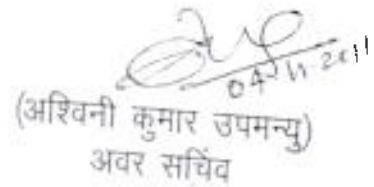 04-11-2011
(अश्विनी कुमार उपमन्यु)
अवर सचिव